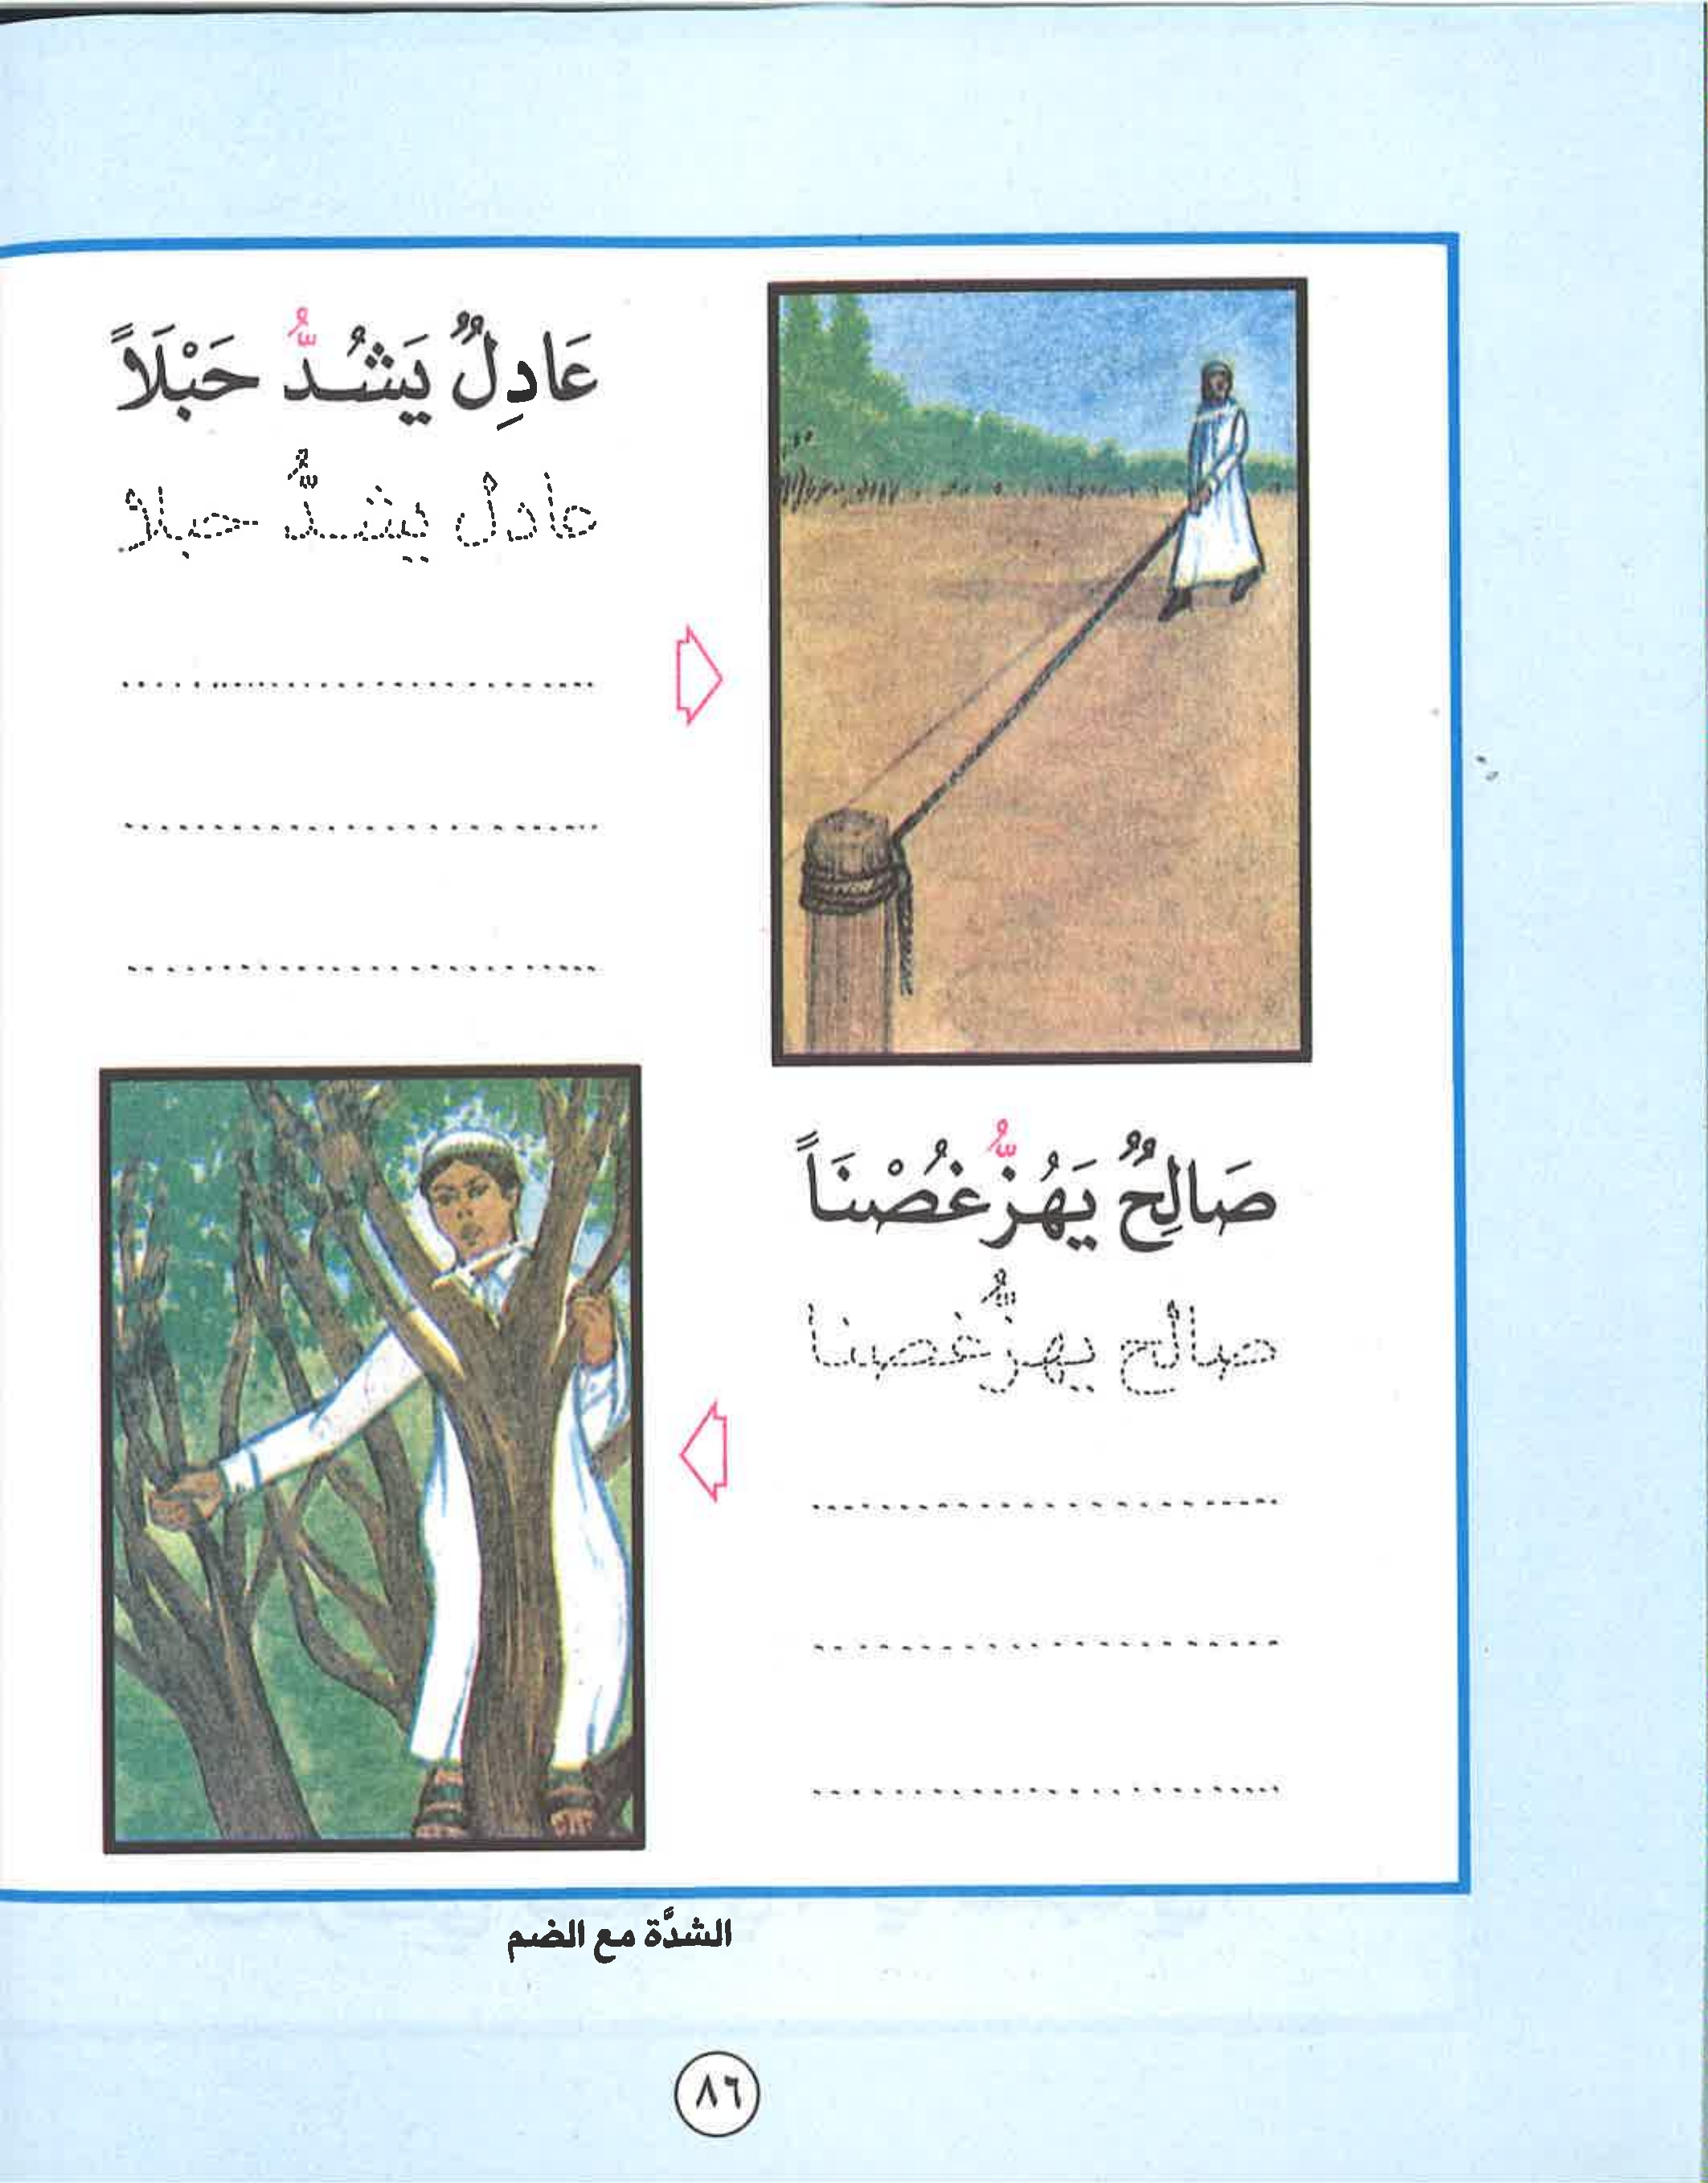 عَادِلٌ يَشُدُّ حَبْلَاً
عادلٌ يشدُّ حبلاً
صَالِحٌ يَهُزُّ غُصْنَاً
صالح يهزُّ غصنا
الشدَّة مع الضم
٨٦